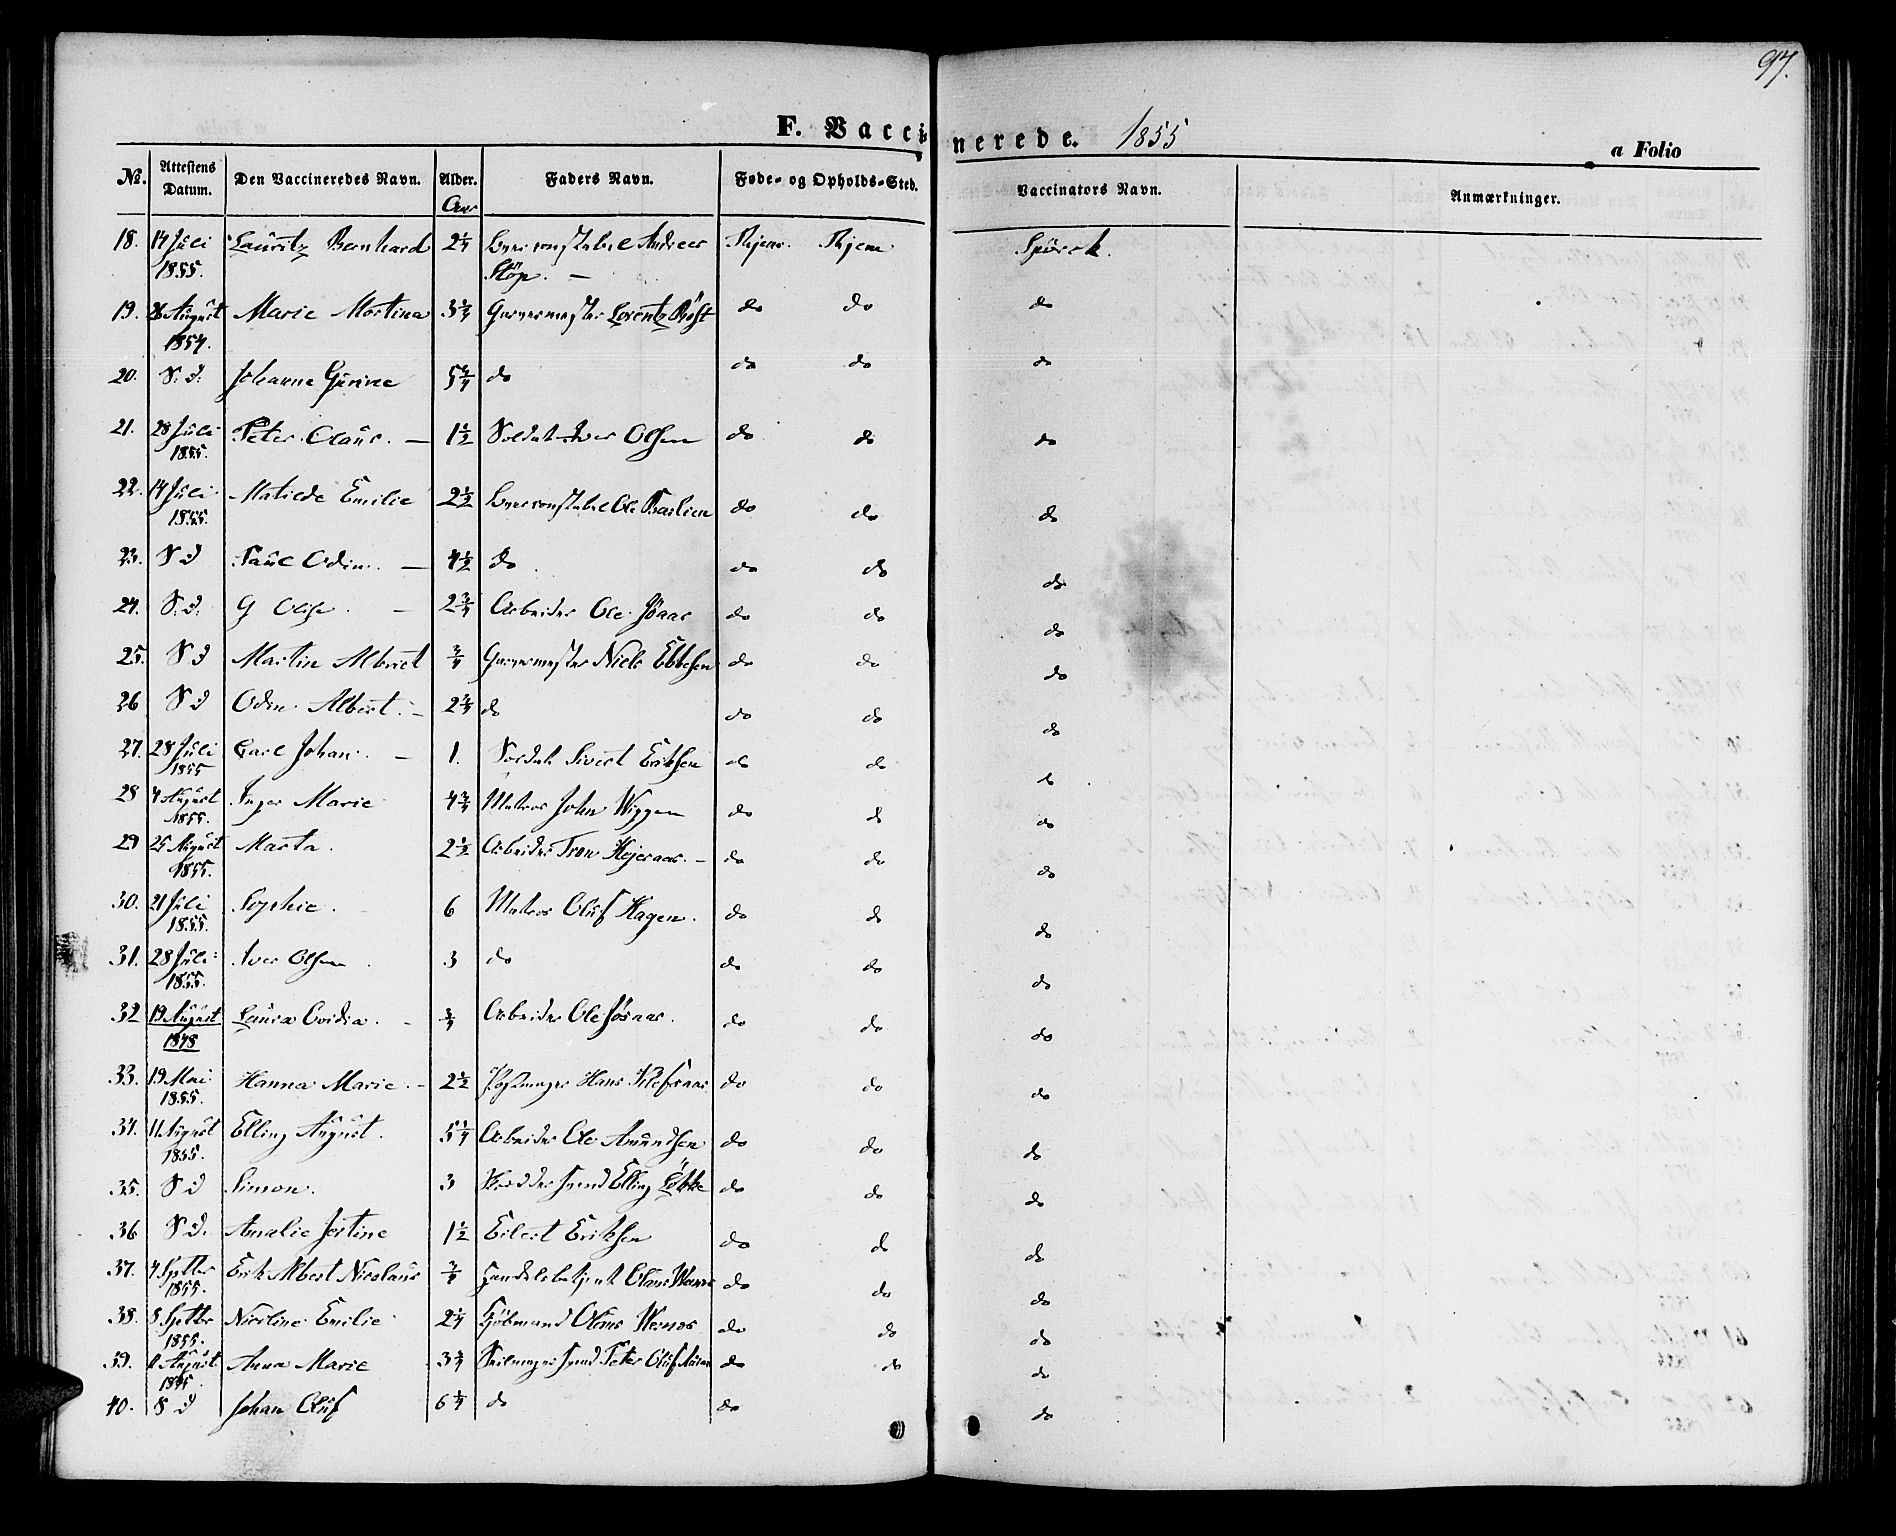 97.
F. Vaccinerede. 1855
a Folio
No. Attestens Datum. Den Vaccineredes Navn. Alder. Faders Navn. Føde- og Opholds-Sted. Vaccinators Navn. Anmærkninger.
Aar
18. 14 Juli 1855. Lauritz Bernhard 2 1/4 Andreas Støp. — Spörck.
19. 26 August 1854. Marie Martina 3 3/4 Garvermester Lorentz do do do
20. S. d. Johanne 5 3/4 do do do do
21. 28 Juli 1855. Peter Claus. — 1 1/2 Soldat Iver Olsen do do do
22. 14 Juli 1855. Matilde Emilie 2 1/2 Ole do do do
23. S d Paul Odin. — 4 1/2 do do do do
24. S. d. — 2 3/4 Arbeider Ole do do do
25. S d Martin Albert 3/4 Garvermester Niels Ebbesen do do do
26 S d Odin Albert. — 2 3/4 do do do do
27. 28 Juli 1855 Carl Johan. — 1. Soldat Sivert Eriksen do do do
28 4 August 1855. Inger Marie 4 3/4 Matros John Wiggen do do do
29 25 August 1855. Marta. 2 1/2 Arbeider Tron — do do do
30. 21 Juli 1855. Sophie. 6 Matros Oluf Hagen. do do do
31. 28 Juli 1855. Iver Olsen 3 do do do do
32 19 August 1848 Laura Ovidia. — 3/4 Arbeider Ole do do do
33. 19 Mai 1855. Hanna Marie. — 2 1/2 Hans do do do
34. 11 August 1855. Elling August. 5 1/4 Arbeider Ole Amundsen do do do
35. S d Simon. 3 Elling Løkke do do do
36 S d. Amalie Jertine 1 1/2 Eilert Eriksen do do do
37. 4 Septbr 1855. Erik Albert Nicolaus 3/4 Handelsbetjent Claus do do do
38. 8 Septbr 1855. Nicoline Emilie 2 1/4 Kjøbmand Claus do do do
39. 11 August Anna Marie 3 3/4 Peter Oluf do do do
40. S d Johan Oluf 6 1/4 do do do